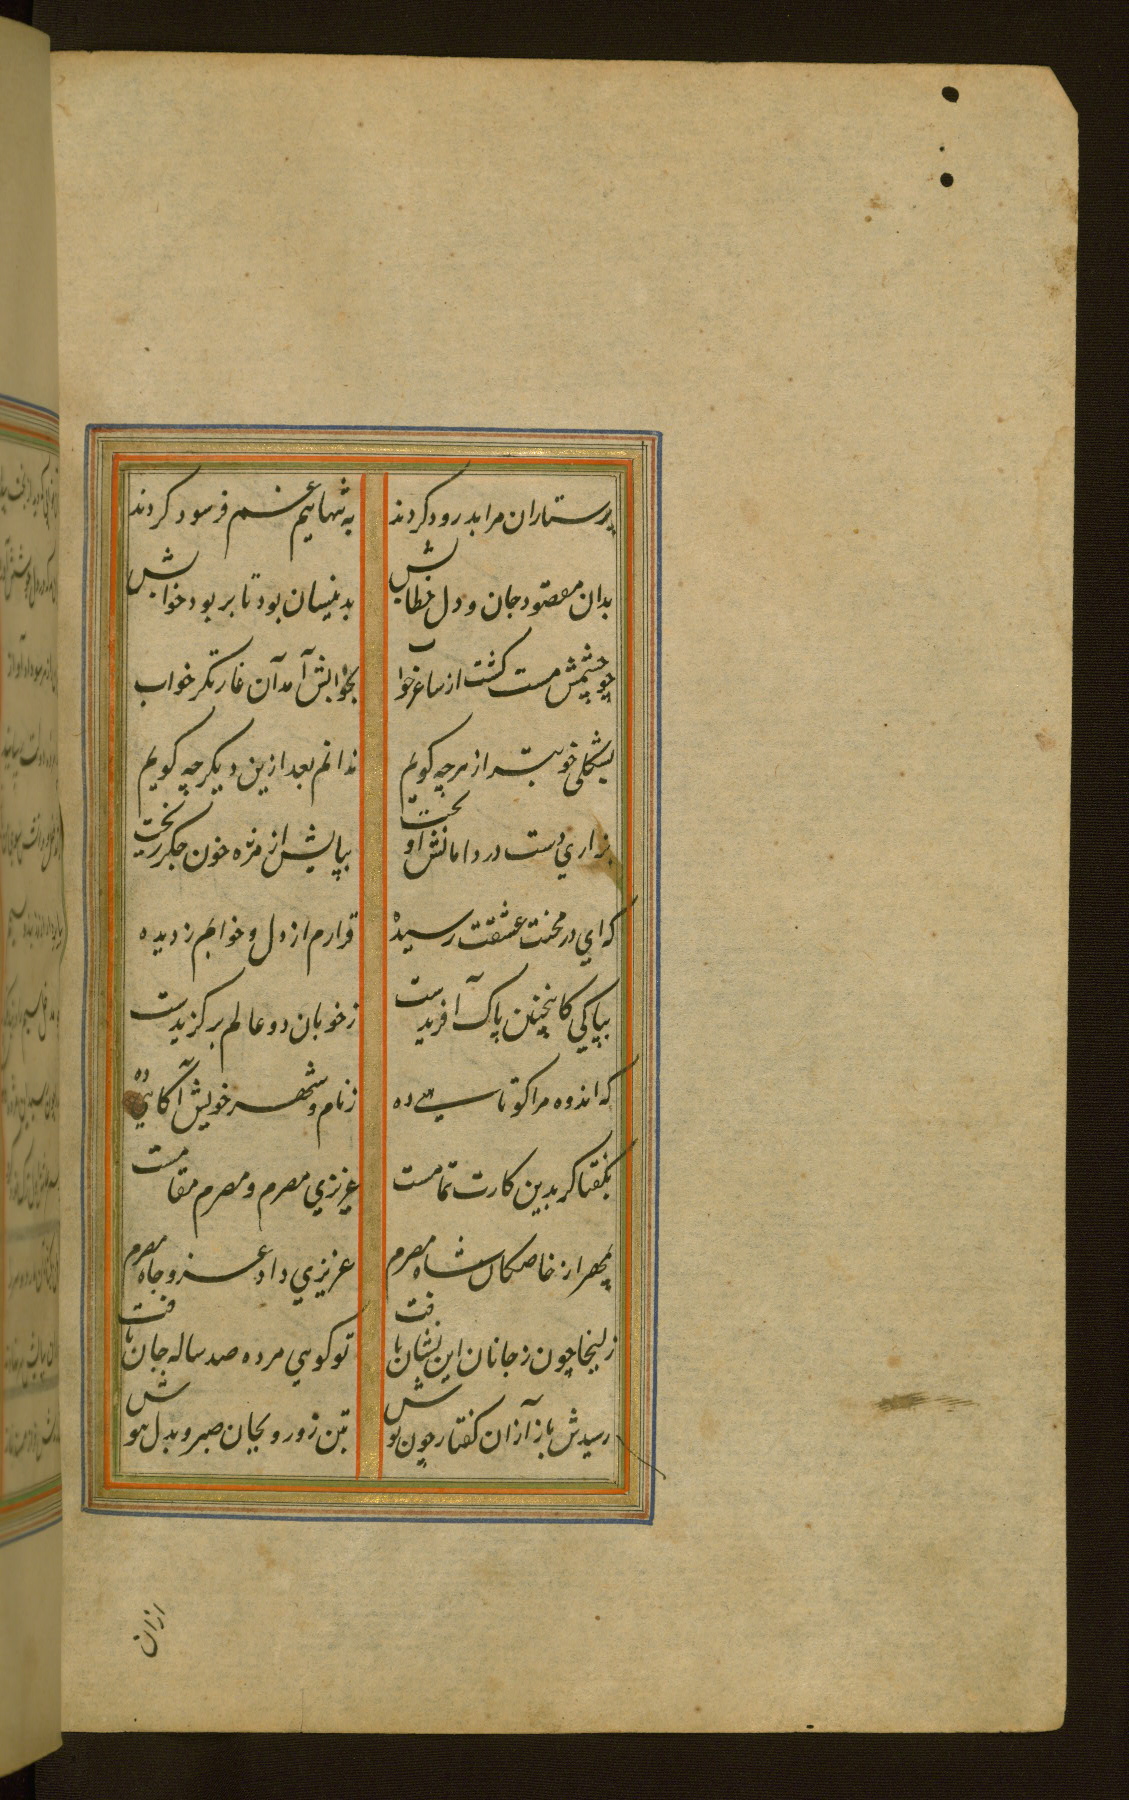 پرستاران مرا بدرود کردند به تنهاییم غم فرسود کردند
بدان مقصود جان و دل خطابش بدینسان بود تا بربود خوابش
چو چشمش مست گشت از ساغر خواب بخوابش آمد آن غارتگر خواب
بشکلی خوبتر از هرچه گویم ندانم بعد ازین دیگر چه گویم
بزاری دست در دامانش آویخت بپایش از مژه خون جگر ریخت
که ای در محنت عشقت رسیده قرارم از دل و خوابم ز دیده
بپاکی کاینچنین پاک آفریدست ز خوبان دو عالم برگزیدست
که اندوه مرا کوتاهی ده ز نام و شهر خویش آگاهی ده
بگفتا گر بدین کارت تمامست عزیزی مصرم و مصرم مقامست
بمصر از خاصگان شاه مصرم عزیزی داد عز و جاه مصرم
زلیخا چون ز جانان این نشان یافت تو گویی مرده صد ساله جان یافت
رسیدش باز از آن گفتار چون نوش بتن زور و بجان صبر و بدل هوش
ازان